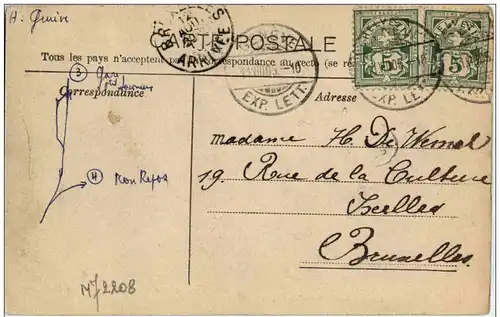 A: Genève
CARTE POSTALE
BRUXELLES
ARRIVÉE
EXP. LETT.
Tous les pays n'acceptent pas correspondance au recto (se re
5 5
EXP. LETT.
Correspondance
Adresse
③ Gare
④ Mon Repos
Madame H. De Wemal
19, Rue de la Culture
Ixelles
Bruxelles
N72208